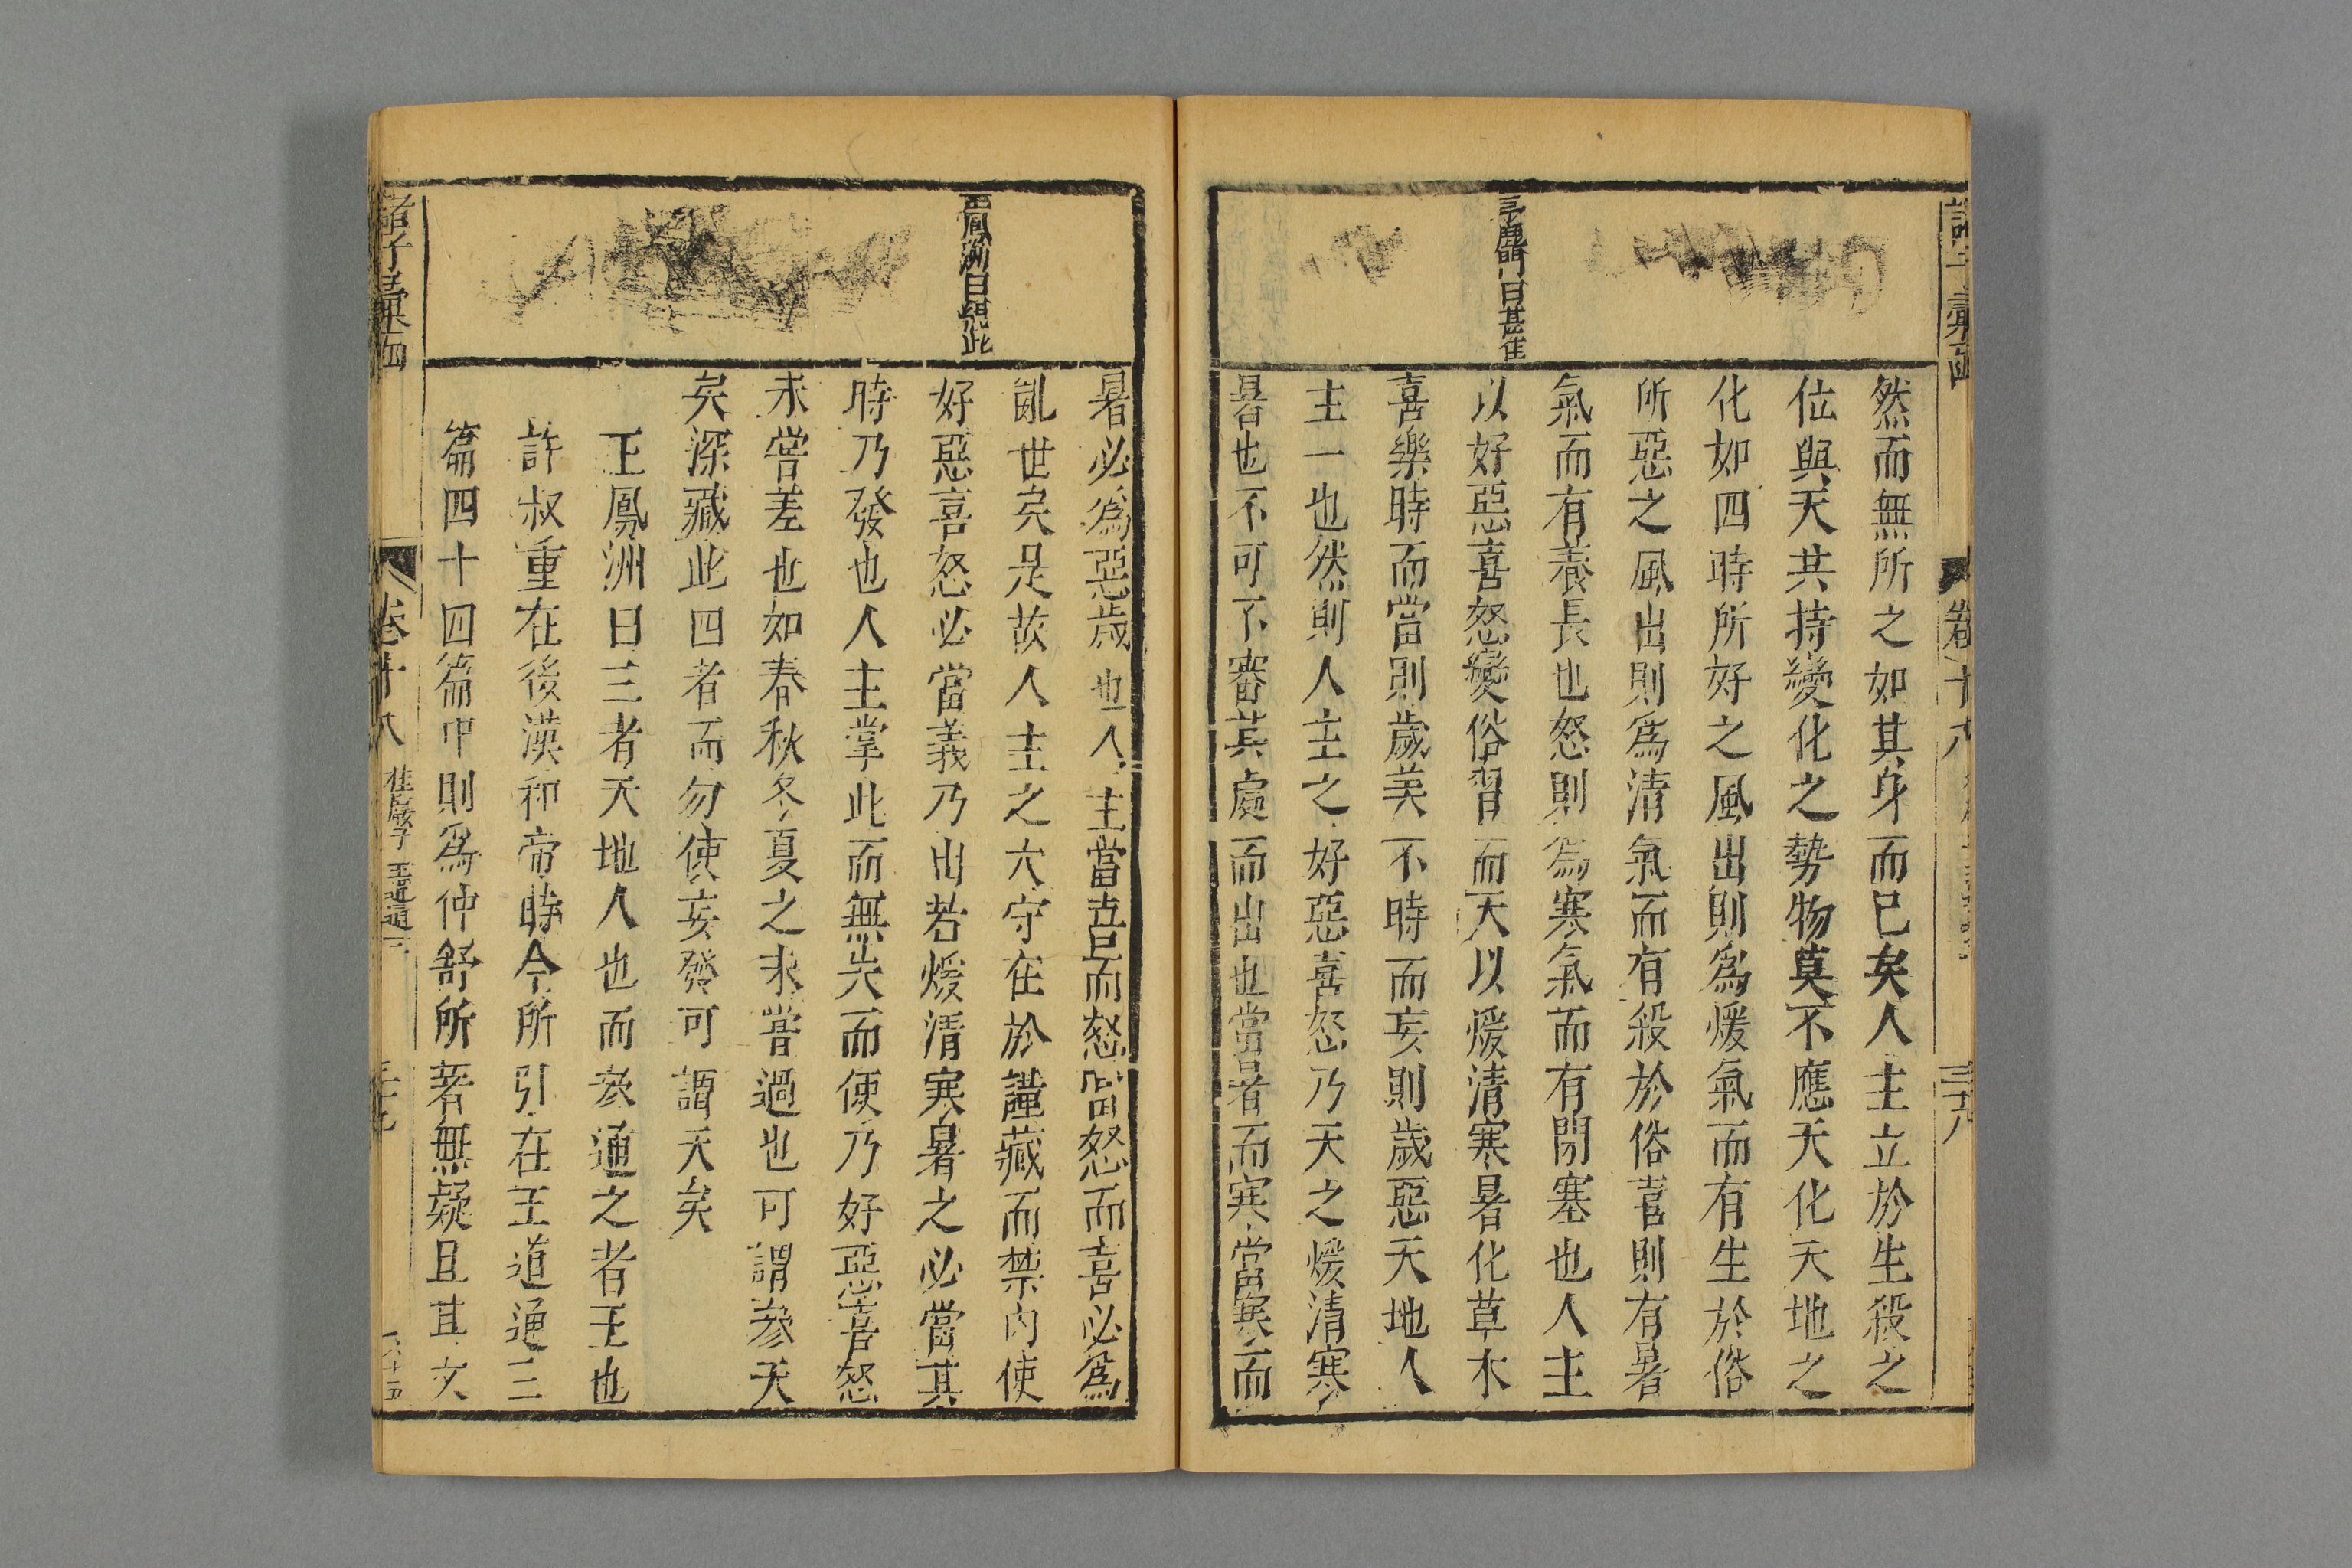 然而無所之如其身而已矣人主立於生殺之
位與天共持變化之勢物莫不應天化天地之
化如四時所好之風出則爲煖氣而有生於俗
所惡之風出則爲清氣而有殺於俗喜則有暑
氣而有養長也怒則爲寒氣而有閉塞也人主
以好惡喜怒變俗習而天以煖清寒暑化草木
喜樂時而當則歲美不時而妄則歲惡天地人
主一也然則人主之好惡喜怒乃天之煖清寒
暑也不可不審其處而出也當暑而寒當寒而
鹿門曰甚佳
暑必爲惡歲也人主當喜而怒當怒而喜必爲
亂世矣是故人主之大守在於謹藏而禁內使
好惡喜怒必當義乃出若煖清寒暑之必當其
時乃發也人主掌此而無失而使乃好惡喜怒
未嘗差也如春秋冬夏之未嘗過也可謂參天
矣深藏此四者而勿使妄發可謂天矣
王鳳洲曰三者天地人也而叅通之者王也
許叔重在後漢和帝時今所引在王道通三
篇四十四篇中則爲仲舒所著無疑且其文
王鳳洲曰
卷十八
桂巖子
王道通三